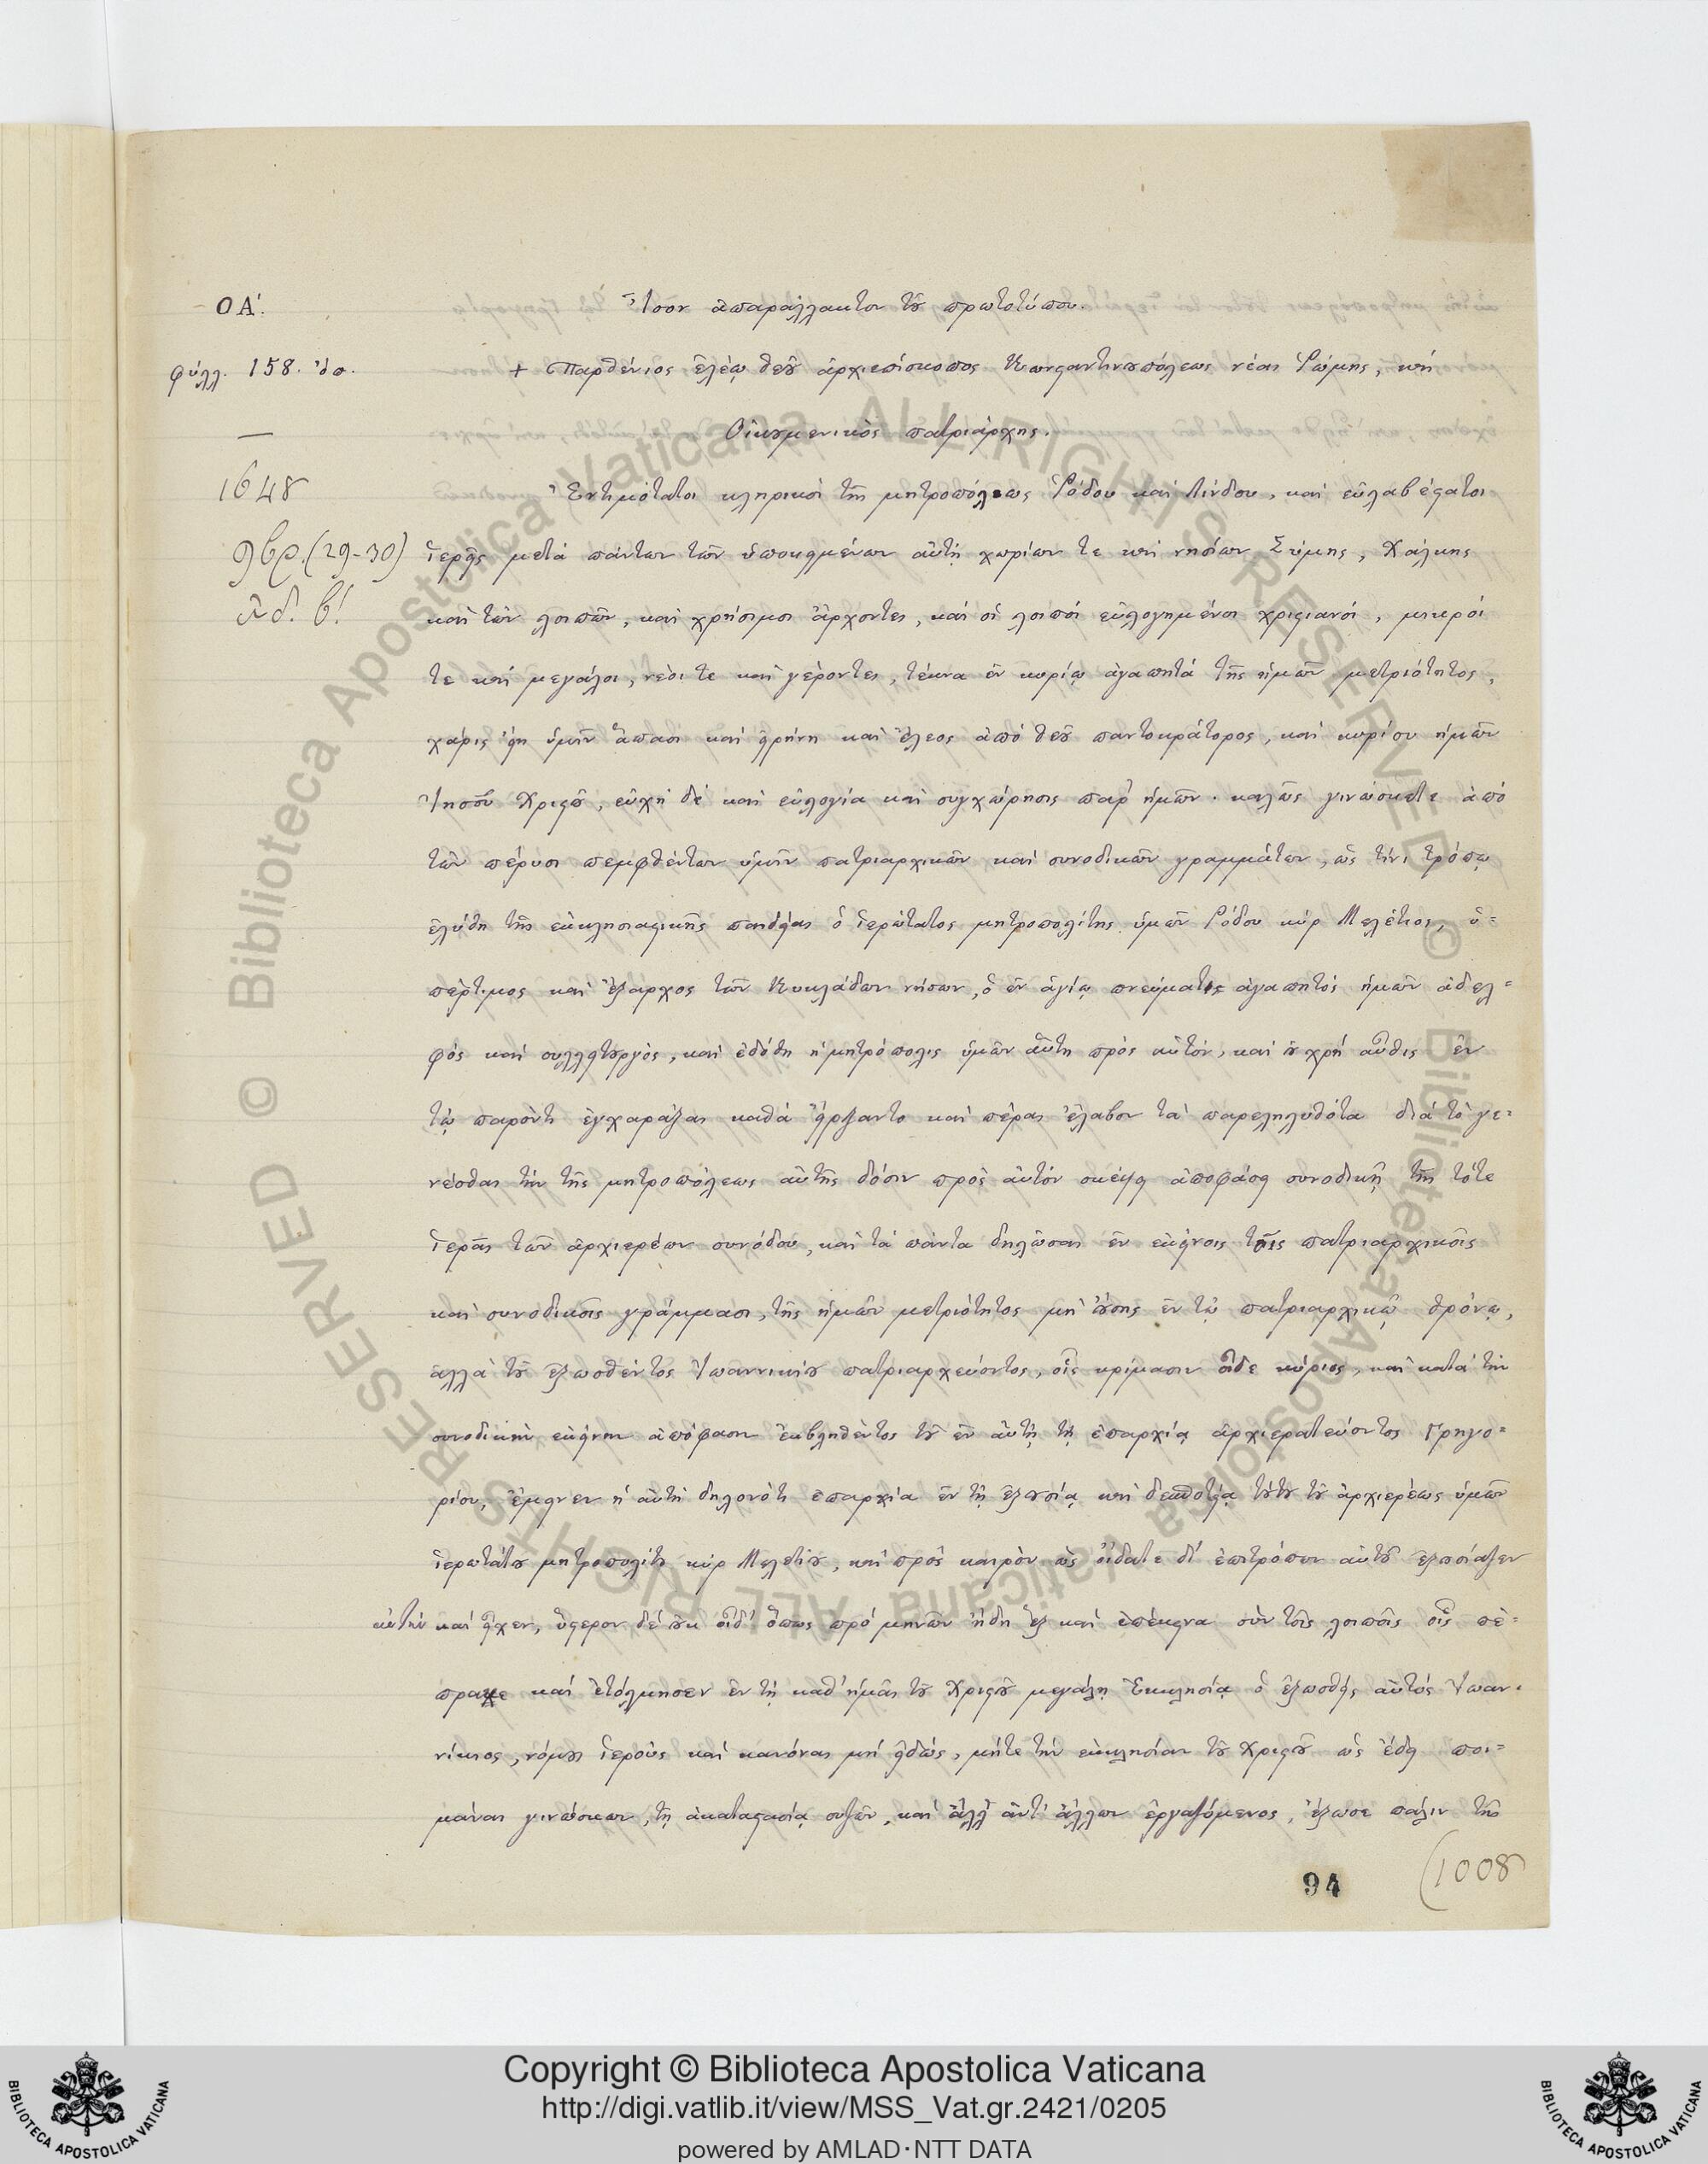 ΟΑ΄. Ἴσον ἀπαράλλακτον τοῦ πρωτοτύπου.
φύλλ. 158. ὄπ. + Παρθένιος ἐλέῳ θεοῦ ἀρχιεπίσκοπος Κωνσταντινουπόλεως νέας Ῥώμης, καὶ
Οἰκουμενικὸς πατριάρχης.
1648
9βρ. (29-30)
ἰνδ. β!
Ἐντιμότατοι κληρικοὶ τῆς μητροπόλεως Ῥόδου καὶ Λίνδου, καὶ εὐλαβέστατοι
ἱερεῖς μετὰ πάντων τῶν ὑποκειμένων αὐτῇ χωρίων τε καὶ νησίων Σύμης, Χάλκης
καὶ τῶν λοιπῶν, καὶ χρήσιμοι ἄρχοντες, καὶ οἱ λοιποὶ εὐλογημένοι χριστιανοί, μικροί
τε καὶ μεγάλοι, νέοι τε καὶ γέροντες, τέκνα ἐν κυρίῳ ἀγαπητὰ τῆς ἡμῶν μετριότητος,
χάρις εἴη ὑμῖν ἅπασι καὶ εἰρήνη καὶ ἔλεος ἀπὸ θεοῦ παντοκράτορος, καὶ κυρίου ἡμῶν
Ἰησοῦ Χριστοῦ, εὐχὴ δὲ καὶ εὐλογία καὶ συγχώρησις παρ' ἡμῶν. καλῶς γινώσκετε ἀπὸ
τῶν πέρυσι πεμφθέντων ὑμῖν πατριαρχικῶν καὶ συνοδικῶν γραμμάτων, ὡς τίνι τρόπῳ
ἐλύθη τῆς ἐκκλησιαστικῆς παιδείας ὁ ἱερώτατος μητροπολίτης ὑμῶν Ῥόδου κὺρ Μελέτιος, ὑ=
πέρτιμος καὶ ἔξαρχος τῶν Κυκλάδων νήσων, ὁ ἐν ἁγίῳ πνεύματι ἀγαπητὸς ἡμῶν ἀδελ=
φὸς καὶ συλλειτουργὸς, καὶ ἐδόθη ἡ μητρόπολις ὑμῶν αὕτη πρὸς αὐτόν, καὶ οὐ χρὴ αὖθις ἐν
τῷ παρόντι ἐγχαράξαι καθὰ ἤρξαντο καὶ πέρας ἔλαβον τὰ παρεληλυθότα διὰ τὸ γε=
νέσθαι τὴν τῆς μητροπόλεως αὐτῆς δόσιν πρὸς αὐτόν σκέψει ἀποφάσει συνοδικῇ τῆς τότε
ἱερᾶς τῶν ἀρχιερέων συνόδου, καὶ τὰ πάντα δηλῶσαι ἐν ἐκείνοις τοῖς πατριαρχικοῖς
καὶ συνοδικοῖς γράμμασι, τῆς ἡμῶν μετριότητος μὴ οὔσης ἐν τῷ πατριαρχικῷ θρόνῳ,
ἀλλὰ τοῦ ἐξωσθέντος Ἰωαννικίου πατριαρχεύοντος, οἷς κρίμασιν οἶδε κύριος, καὶ κατὰ τὴν
συνοδικὴν ἐκείνην ἀπόφασιν ἐκβληθέντος τοῦ ἐν αὐτῇ τῇ ἐπαρχίᾳ ἀρχιερατεύοντος Γρηγο=
ρίου, ἔμεινεν ἡ αὐτὴ δηλονότι ἐπαρχία ἐν τῇ ἐξουσίᾳ καὶ δεσποτείᾳ τούτου τοῦ ἀρχιερέως ὑμῶν
ἱερωτάτου μητροπολίτου κὺρ Μελετίου, καὶ πρὸς καιρὸν ὡς οἴδατε δι' ἐπιτρόπων αὐτοῦ ἐξουσίαζεν
αὐτὴν καὶ εἶχεν, ὕστερον δὲ οὐκ οἶδ' ὅπως πρὸ μηνῶν ἤδη ἓξ καὶ ἐπέκεινα σὺν τοῖς λοιποῖς οἷς πέ=
πραχε καὶ ἐτόλμησεν ἐν τῇ καθ' ἡμᾶς τοῦ Χριστοῦ μεγάλῃ Ἐκκλησίᾳ ὁ ἐξωσθεὶς αὐτὸς Ἰωαν=
νίκιος, νόμους ἱεροὺς καὶ κανόνας μὴ εἰδὼς, μήτε τὴν ἐκκλησίαν τοῦ Χριστοῦ ὡς ἔδει ποι=
μάναι γινώσκων, τῇ ἀκαταστασίᾳ συζῶν, καὶ ἄλλ' ἀντ' ἄλλων ἐργαζόμενος, ἔξωσε πάλιν τῆς
94
(1008
© Biblioteca Apostolica Vaticana ALL RIGHTS RESERVED
© Biblioteca Apostolica Vaticana ALL RIGHTS RESERVED
Copyright © Biblioteca Apostolica Vaticana
http://digi.vatlib.it/view/MSS_Vat.gr.2421/0205
powered by AMLAD·NTT DATA
BIBLIOTECA APOSTOLICA VATICANA
BIBLIOTECA APOSTOLICA VATICANA